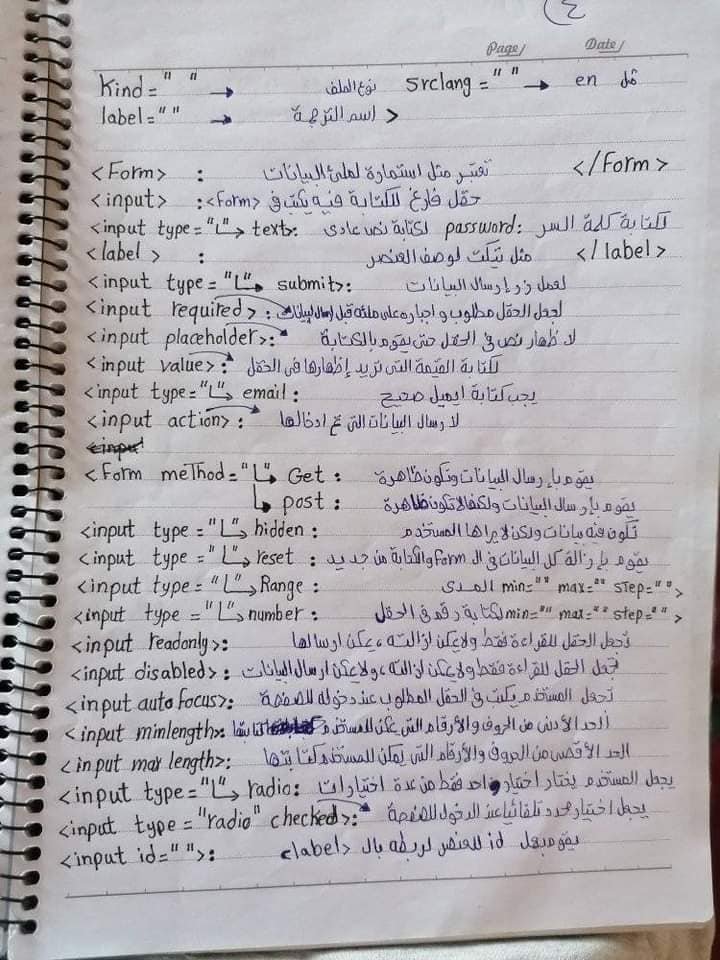 ٤
Page/ Date/
Kind = " " → نوع الملف srclang = " " → en مثل
label = " " → اسم الترجمة >
<Form> : تعتبر مثل استمارة لملئ البيانات </Form>
<input> : حقل فارغ للكتابة فيه يكتب في <form>
<input type="L→ text>: لكتابة نص عادى password: لكتابة كلمة السر
<label> : مثل تيكت لوصف العنصر </label>
<input type="L→ submit>: لعمل زر إرسال البيانات
<input required>: لجعل الحقل مطلوب و اجباره على ملئه قبل ارسال البيانات
<input placeholder>: لا ظهار نص في الحقل حتى يقوم بالكتابة
<input value>: لكتابة القيمة التى تريد إظهارها فى الحقل
<input type="L→ email: يجب كتابة ايميل صحيح
<input action>: لا رسال البيانات التى تم ادخالها
<input
<Form meThod="L→ Get : يقوم بإرسال البيانات وتكون ظاهرة
↳ post : يقوم بإرسال البيانات ولكن لا تكون ظاهرة
<input type="L→ hidden : تكون فيه بيانات ولكن لا يراها المستخدم
<input type="L→ reset : يقوم بإزالة كل البيانات في ال Form والكتابة من جديد
<input type="L→ Range : المدى min="" max="" step="">
<input type="L→ number: لكتابة رقم في الحقل min="" max="" step="">
<input readonly>: تجعل الحقل للقراءة فقط ولا يمكن ازالته ، يمكن ارسالها
<input disabled>: تجعل الحقل للقراءة فقط ولا يمكن ازالته ، ولا يمكن ارسال البيانات
<input auto focus>: تجعل المستخدم يكتب في الحقل المطلوب عند دخوله للصفحة
<input minlength>: الحد الأدنى من الحروف والأرقام التى يمكن للمستخدم كتابتها
<input max length>: الحد الأقصى من الحروف والأرقام التى يمكن للمستخدم كتابتها
<input type="L→ radio: يجعل المستخدم يختار اختيار واحد فقط من عدة اختيارات
<input type="radio" checked>: يجعل اختيار محدد تلقائيا عند الدخول للصفحة
<input id=" ">: يقوم بعمل id للعنصر لربطه بال <label>